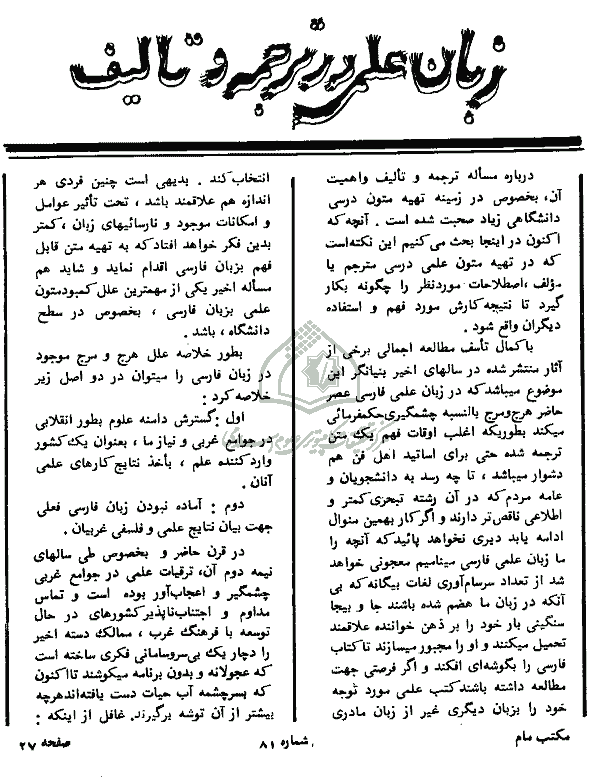 زبان علمی در ترجمه و تالیف
درباره مسأله ترجمه و تألیف واهمیت
آن، بخصوص در زمینه تهیه متون درسی
دانشگاهی زیاد صحبت شده است . آنچه که
اکنون در اینجا بحث می کنیم این نکته‌است
که در تهیه متون علمی درسی مترجم یا
مؤلف ،اصطلاحات موردنظر را چگونه بکار
گیرد تا نتیجه‌کارش مورد فهم و استفاده
دیگران واقع شود .
باکمال تأسف مطالعه اجمالی برخی از
آثار منتشر شده در سالهای اخیر بیانگر این
موضوع میباشدکه در زبان علمی فارسی عصر
حاضر هرج‌ومرج بالنسبه چشمگیری‌حکمفرمائی
میکند بطوریکه اغلب اوقات فهم یك متن
ترجمه شده حتی برای اساتید اهل فن هم
دشوار میباشد ، تا چه رسد به دانشجویان و
عامه مردم‌که در آن رشته تبحری‌کمتر و
اطلاعی ناقص‌تر دارند و اگرکار بهمین منوال
ادامه یابد دیری نخواهد پائیدکه آنچه را
ما زبان علمی فارسی مینامیم معجونی خواهد
شد از تعداد سرسام‌آوری لغات بیگانه‌که بی
آنکه در زبان ما هضم شده باشند جا و بیجا
سنگینی بار خود را بر ذهن خواننده علاقمند
تحمیل میکنند و او را مجبور میسازند تاکتاب
فارسی را بگوشه‌ای افکند و اگر فرصتی جهت
مطالعه داشته باشدکتب علمی مورد توجه
خود را بزبان دیگری غیر از زبان مادری
انتخاب‌کند . بدیهی است چنین فردی هر
اندازه هم علاقمند باشد ، تحت تأثیر عوامل
و امکانات موجود و نارسائیهای زبان ،کمتر
بدین فکر خواهد افتادکه به تهیه متن قابل
فهم بزبان فارسی اقدام نماید و شاید هم
مسأله اخیر یکی از مهمترین علل کمبودمتون
علمی بزبان فارسی ، بخصوص در سطح
دانشگاه ، باشد .
بطور خلاصه علل هرج و مرج موجود
در زبان فارسی را میتوان در دو اصل زیر
خلاصه‌کرد :
اول :گسترش دامنه علوم بطور انقلابی
در جوامع غربی و نیاز ما ، بعنوان یك‌کشور
واردکننده علم ، بأخذ نتایج‌کارهای علمی
آنان .
دوم : آماده نبودن زبان فارسی فعلی
جهت بیان نتایج علمی و فلسفی غربیان .
در قرن حاضر و بخصوص طی سالهای
نیمه دوم آن، ترقیات علمی در جوامع غربی
چشمگیر و اعجاب‌آور بوده است و تماس
مداوم و اجتناب‌ناپذیرکشورهای در حال
توسعه با فرهنگ غرب ، ممالك دسته اخیر
را دچار یك بی‌سروسامانی فکری ساخته است
که عجولانه و بدون برنامه میکوشند تااکنون
که بسرچشمه آب حیات دست یافته‌اندهرچه
بیشتر از آن توشه برگیرند. غافل از اینکه :
مکتب مام
شماره ۸۱
صفحه ۲۷